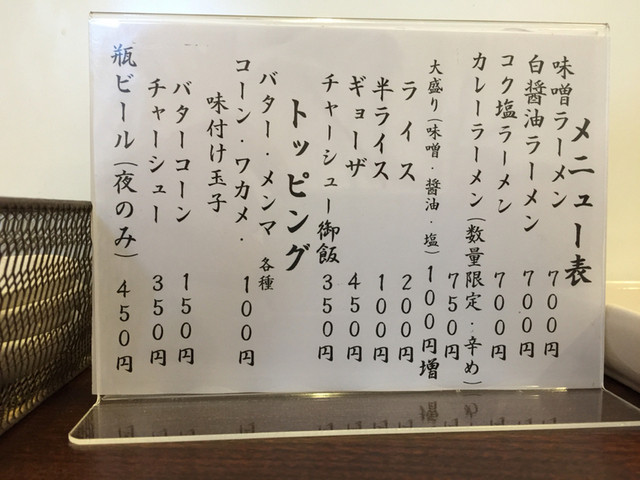 メニュー表
味噌ラーメン 700円
白醤油ラーメン 700円
コク塩ラーメン 700円
カレーラーメン(数量限定・辛め)
750円
大盛り(味噌・醤油・塩)100円増
ライス 200円
半ライス 100円
ギョーザ 450円
チャーシュー御飯 350円
トッピング
バター・メンマ 各種
コーン・ワカメ・ 100円
味付け玉子
バターコーン 150円
チャーシュー 350円
瓶ビール(夜のみ) 450円